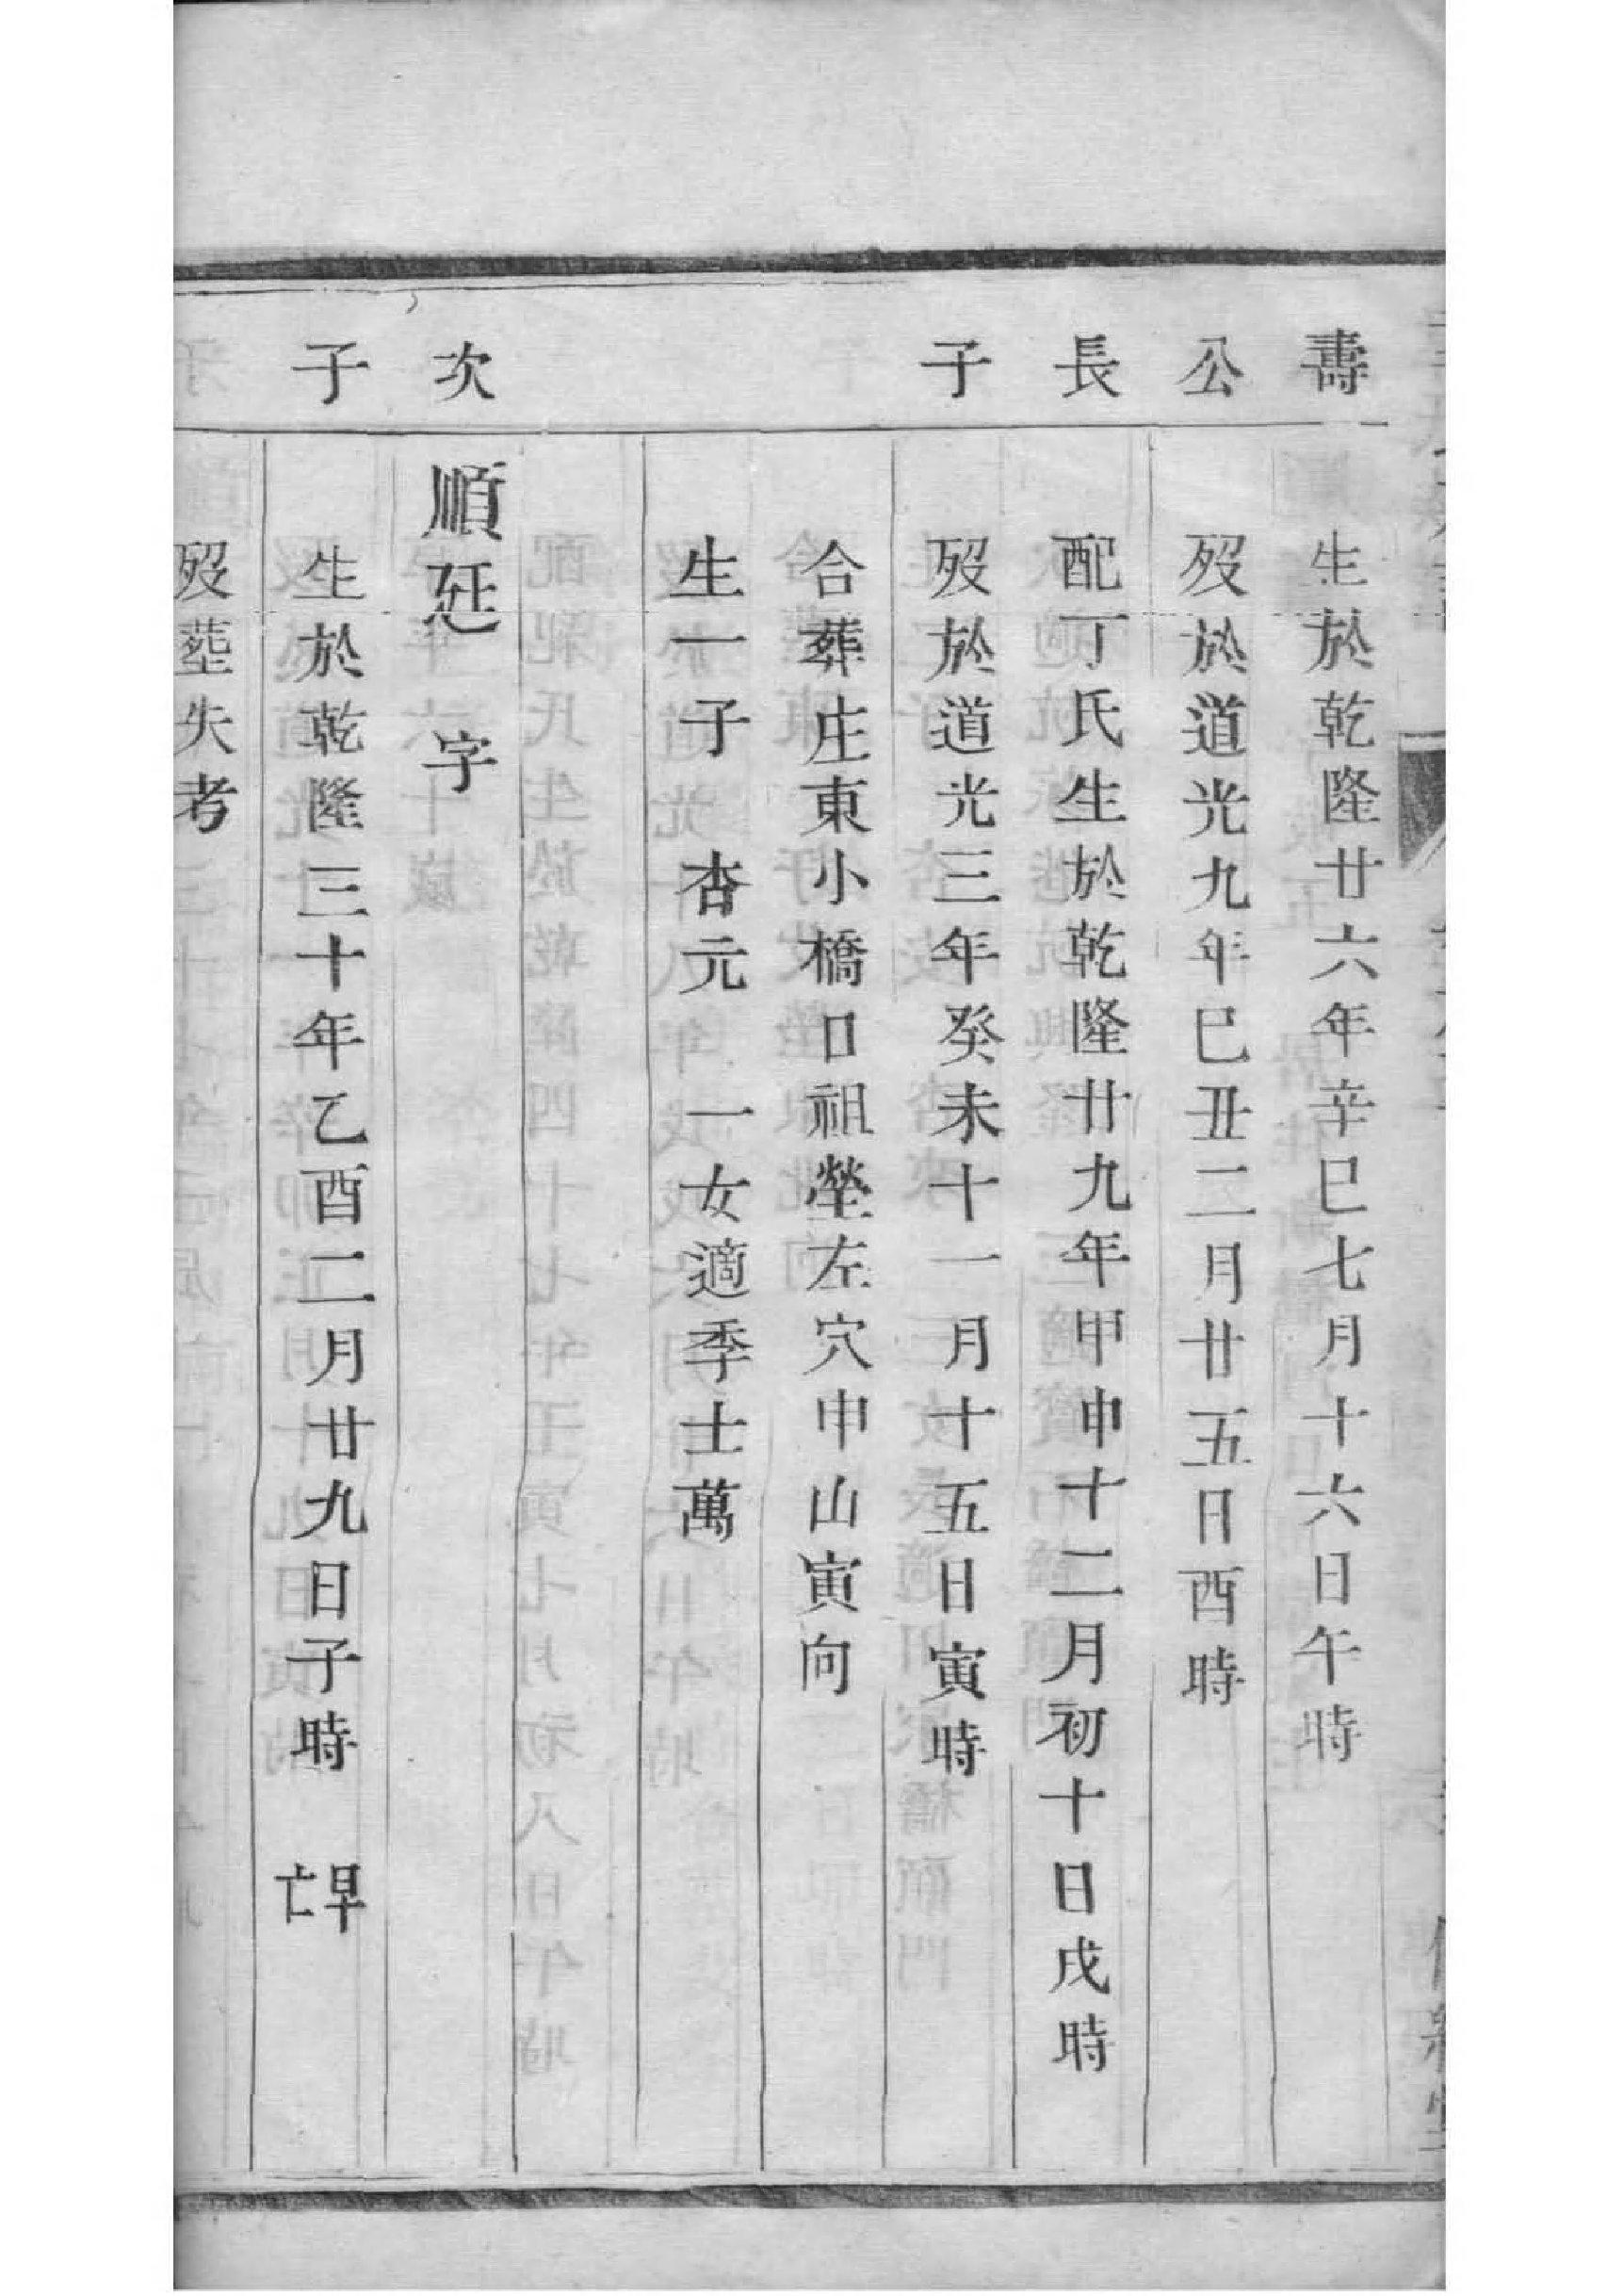 壽公長子
生於乾隆廿六年辛巳七月十六日午時
歿於道光九年巳丑二月廿五日酉時
配丁氏生於乾隆廿九年甲申十二月初十日戌時
歿於道光三年癸未十一月十五日寅時
合葬庄東小橋口祖塋左穴申山寅向
生一子 杏元 一女適季士萬
次子
順延 字
生於乾隆三十年乙酉二月廿九日子時 早亡
歿葬失考